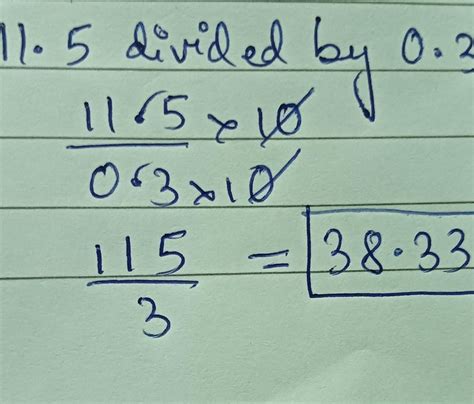 11.5 divided by 0.3
11.5 × 10
0.3 × 10
115
3
= 38.33